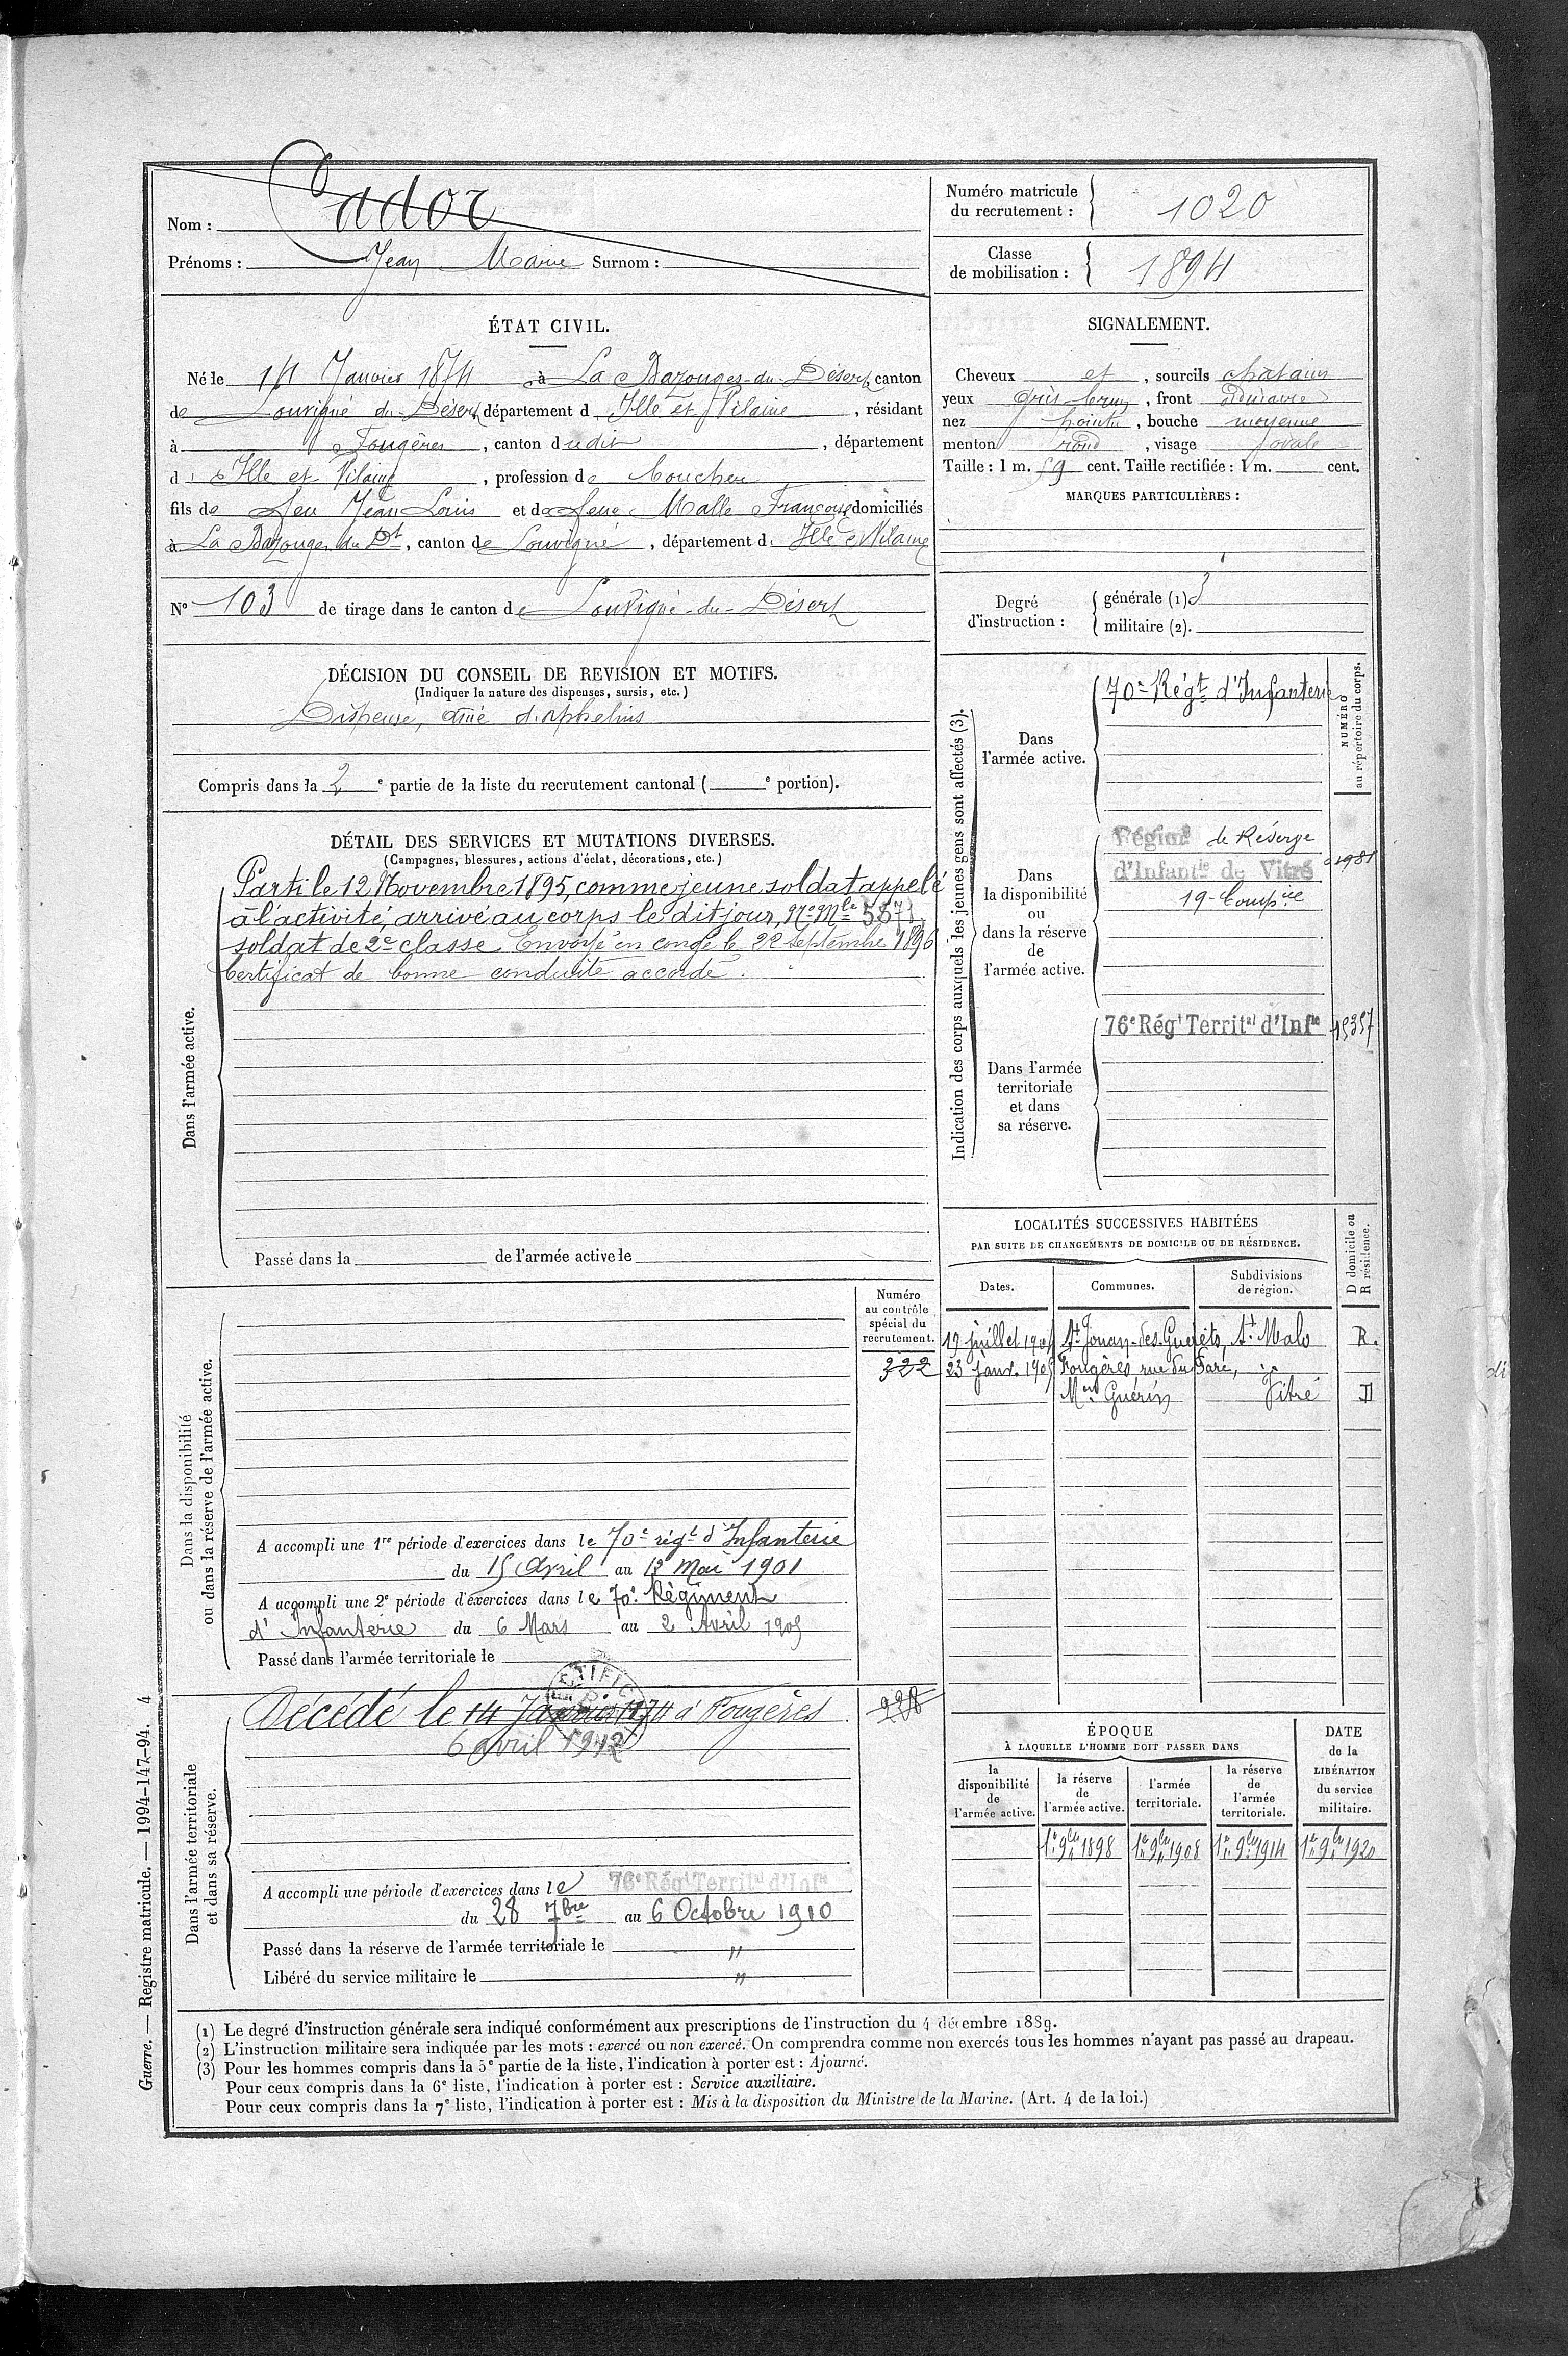 Nom : Cador
Prénoms : Jean Marie Surnom :
Numéro matricule du recrutement : 1020
Classe de mobilisation : 1894
ÉTAT CIVIL.
Né le 14 Janvier 1874 à La Bazouges-du-Désert canton
de Louvigné du-Désert département d Ille et Vilaine, résidant
à Fougères, canton dudit, département
d Ille et Vilaine, profession de boucher
fils de feu Jean Louis et de feue Malle Françoise domiciliés
à La Bazouges du Dt, canton de Louvigné, département d. Ille et Vilaine
N° 103 de tirage dans le canton de Louvigné-du-Désert
SIGNALEMENT.
Cheveux et, sourcils chatains
yeux gris brun, front ordinaire
nez pointu, bouche moyenne
menton rond, visage ovale
Taille : 1 m. 59 cent. Taille rectifiée : 1 m. cent.
MARQUES PARTICULIÈRES :
Degré d'instruction :
générale (1) 3
militaire (2).
DÉCISION DU CONSEIL DE REVISION ET MOTIFS.
(Indiquer la nature des dispenses, sursis, etc.)
Dispensé, aîné d'orphelins
Compris dans la 2e partie de la liste du recrutement cantonal (e portion).
DÉTAIL DES SERVICES ET MUTATIONS DIVERSES.
(Campagnes, blessures, actions d'éclat, décorations, etc.)
Dans l'armée active.
Parti le 12 Novembre 1895, comme jeune soldat appelé
à l'activité, arrivé au corps le dit jour, N° Mle
soldat de 2e classe. Envoyé en congé le 22 Septembre 1896
Certificat de bonne conduite accordé.
Passé dans la de l'armée active le
Indication des corps auxquels les jeunes gens sont affectés (3).
NUMÉRO au répertoire du corps.
Dans l'armée active.
70e Régt d'Infanterie
Dans la disponibilité ou dans la réserve de l'armée active.
Régimt de Réserve
d'Infantie de Vitré 1981
19e Compie
Dans l'armée territoriale et dans sa réserve.
76e Régt Territal d'Infie 15357
LOCALITÉS SUCCESSIVES HABITÉES
PAR SUITE DE CHANGEMENTS DE DOMICILE OU DE RÉSIDENCE.
Dates. Communes. Subdivisions de région. D domicile ou R résidence.
19 juillet St Jouan-des-Guérêts, St Malo R.
23 janv. Fougères rue du
Mon Guérin Vitré D
Dans la disponibilité ou dans la réserve de l'armée active.
Numéro au contrôle spécial du recrutement.
322
A accompli une 1re période d'exercices dans le 70e régt d'Infanterie
du 15 Avril au 12 Mai 1901
A accompli une 2e période d'exercices dans le 70e Régiment
d'Infanterie du 6 Mars au 2 Avril 1905
Passé dans l'armée territoriale le
Dans l'armée territoriale et dans sa réserve.
Décédé le 14 Janvier 1874 à Fougères
6 avril 1912
A accompli une période d'exercices dans le 76e Régt Territal d'Infie
du 28 7bre au 6 Octobre 1910
Passé dans la réserve de l'armée territoriale le "
Libéré du service militaire le "
ÉPOQUE
À LAQUELLE L'HOMME DOIT PASSER DANS
la disponibilité de l'armée active.
la réserve de l'armée active.
l'armée territoriale.
la réserve de l'armée territoriale.
DATE de la LIBÉRATION du service militaire.
1er 9bre 1898 1er 9bre 1908 1er 9bre 1914 1er 9bre 1920
(1) Le degré d'instruction générale sera indiqué conformément aux prescriptions de l'instruction du 4 décembre 1889.
(2) L'instruction militaire sera indiquée par les mots : exercé ou non exercé. On comprendra comme non exercés tous les hommes n'ayant pas passé au drapeau.
(3) Pour les hommes compris dans la 5e partie de la liste, l'indication à porter est : Ajourné.
Pour ceux compris dans la 6e liste, l'indication à porter est : Service auxiliaire.
Pour ceux compris dans la 7e liste, l'indication à porter est : Mis à la disposition du Ministre de la Marine. (Art. 4 de la loi.)
Guerre. — Registre matricule. — 1994-147-94. 4